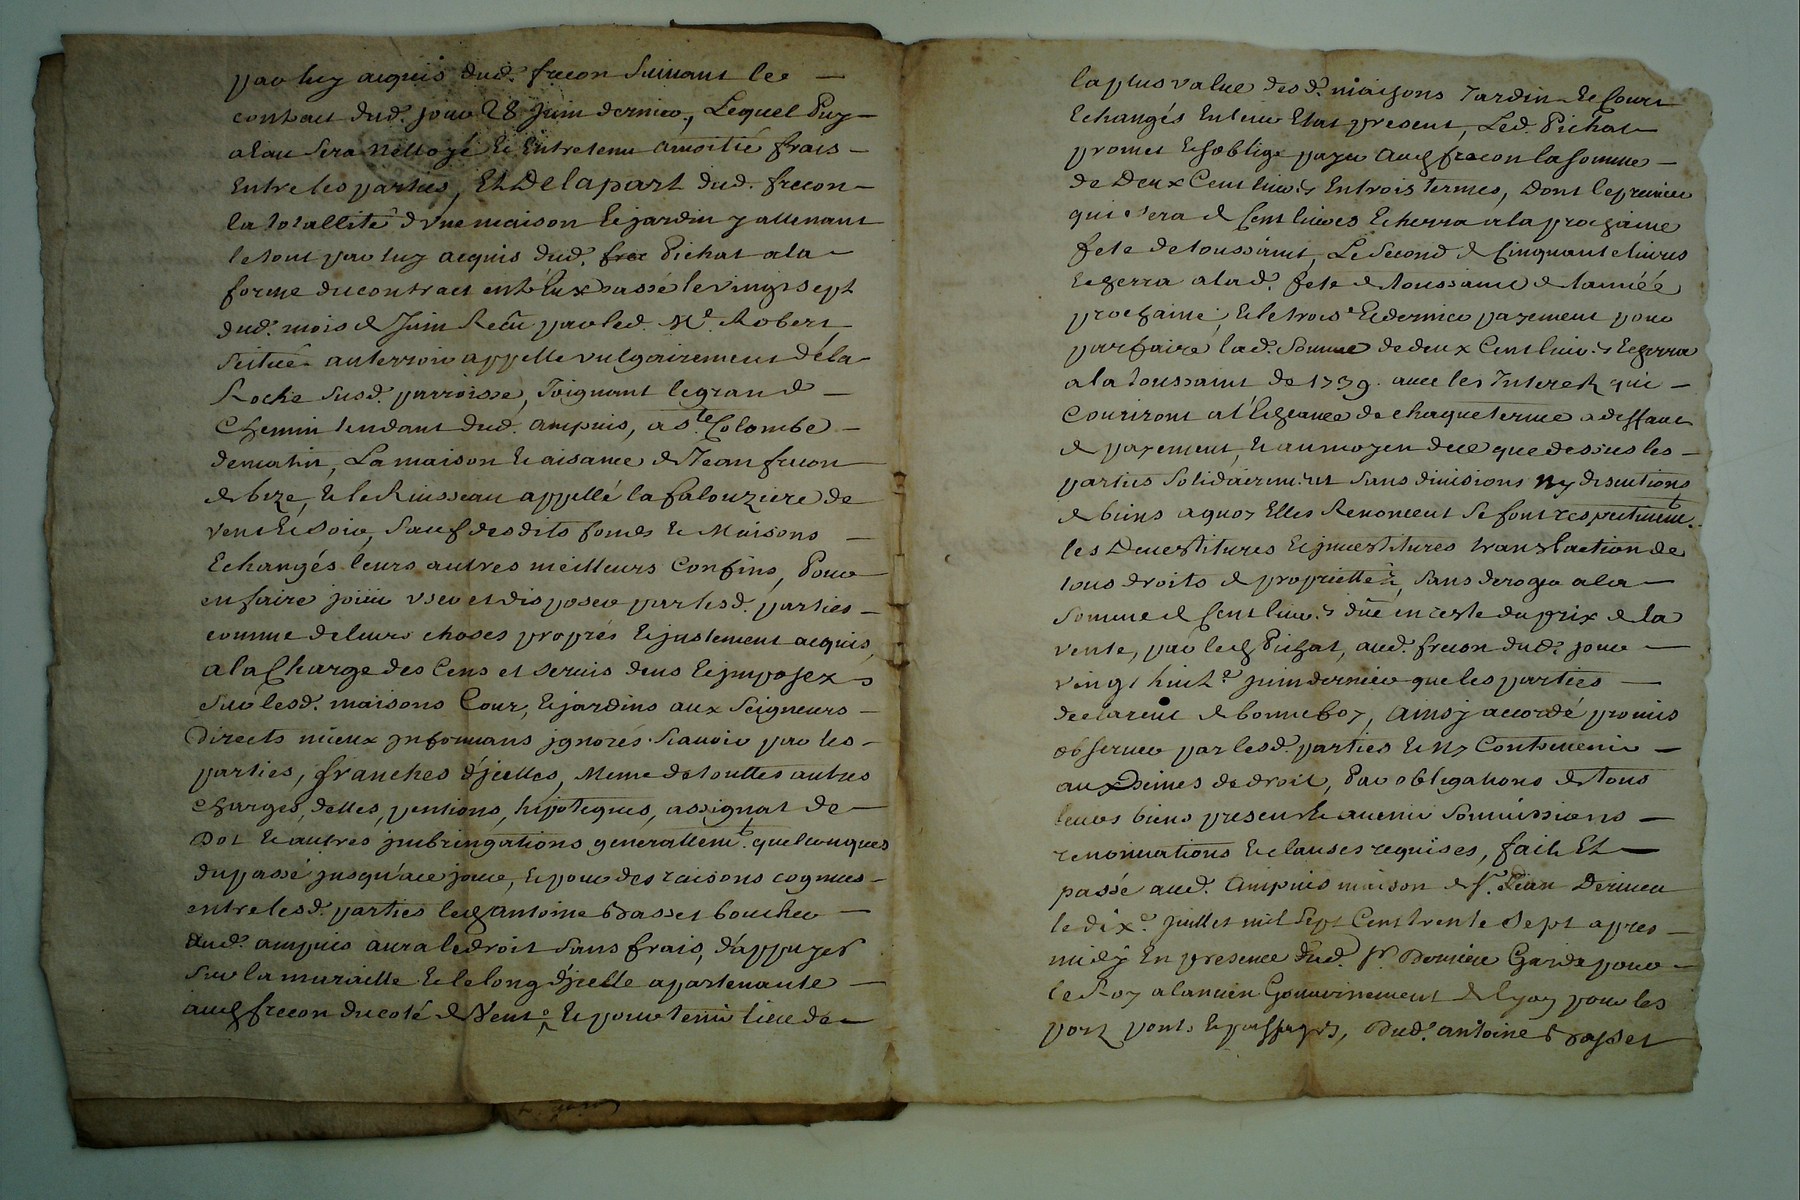 par luy acquis dud. frecon suivant le
contract dud. jour 28 Juin dernier, Lequel Puy
alau sera nettoyé & Entretenu amoitié frais
Entre les parties, Et De la part dud. frecon
la totallité d'vne maison & jardin y attenant
le tout par luy acquis dud. Pichat a la
forme du contract entr'Eux passé le vingt sept
dud. mois de Juin Recû par led. Me. Robert
scituée au terroir appellé vulgairement de la
Roche susd. parroisse, Joignant le grand
Chemin tendant dud. ampuis, a Ste Colombe
de matin, La maison & aisance de Jean frecon
de bize, & le Ruisseau appellé la falouziere de
vent & soir, Sauf desdits fonds & Maisons
Echangés leurs autres meilleurs Confins, Pour
en faire jouir vser et disposer par lesd. parties
comme de leurs choses propres & justement acquis,
a la Charge des Cens et servis deus & imposez
sur lesd. maisons Cour, & jardins aux Seigneurs
Directs mieux jnformans jgnorés scauoir par les
parties, franches d'jcelles, Meme de touttes autres
charges, dettes, pentions, hipoteques, assignat de
Dot & autres jmbringations generallemt. quelconques
du passé jusqu'a ce jour, & pour des raisons cognues
entre lesd. parties led. antoine Brasset boucher
dud. ampuis aura le droit sans frais, d'appuyer
sur la muraille & le long d'jcelle apartenante
aud. frecon du coté de Vent, & pour tenir lieu de
la plus value desd. maisons Jardin & Cour
Echangés En leur Etat present, Led. Pichat
promet & s'oblige payer aud. frecon la somme
de Deux Cent livres En trois termes, Dont le premier
qui sera de Cent livres Echerra a la prochaine
fete de toussaint, Le Second de Cinquante livres
Echerra a lad. fete de toussaint de l'année
prochaine, & le trois.e & dernier payement pour
parfaire lad. Somme de deux Cent livres Echerra
a la toussaint de 1739. avec les Interets qui
Couriront a l'Echeance de chaque terme a deffaut
de payement, & au moyen de ce que dessus les
parties Solidairement sans divisions ny discutions
de biens a quoy Elles Renoncent se font respectivemt.
les Devestitures & jnvestitures translaction de
tous droits de proprietté, sans deroger a la
somme de Cent livres dûe en reste du prix de la
vente, par led. Pichat, aud. frecon dud. jour
vingt huite. juin dernier que les parties
declarent de bonne foy, Ainsy accordé promis
observer par lesd. parties & ny Contrevenir
aux peines de droit, Par obligations de tous
leurs biens present & auenir soumissions
renonciations & clauses requises, fait Et
passé aud. Ampuis maison de Sr. Jean Derieu
le dixe. juillet mil Sept Cent trente Sept apres
midy En presence dud. Sr. Garde pour
le Roy a l'ancien Gouvernement de lyon pour les
port ponts & passages, Dud. antoine Brasset